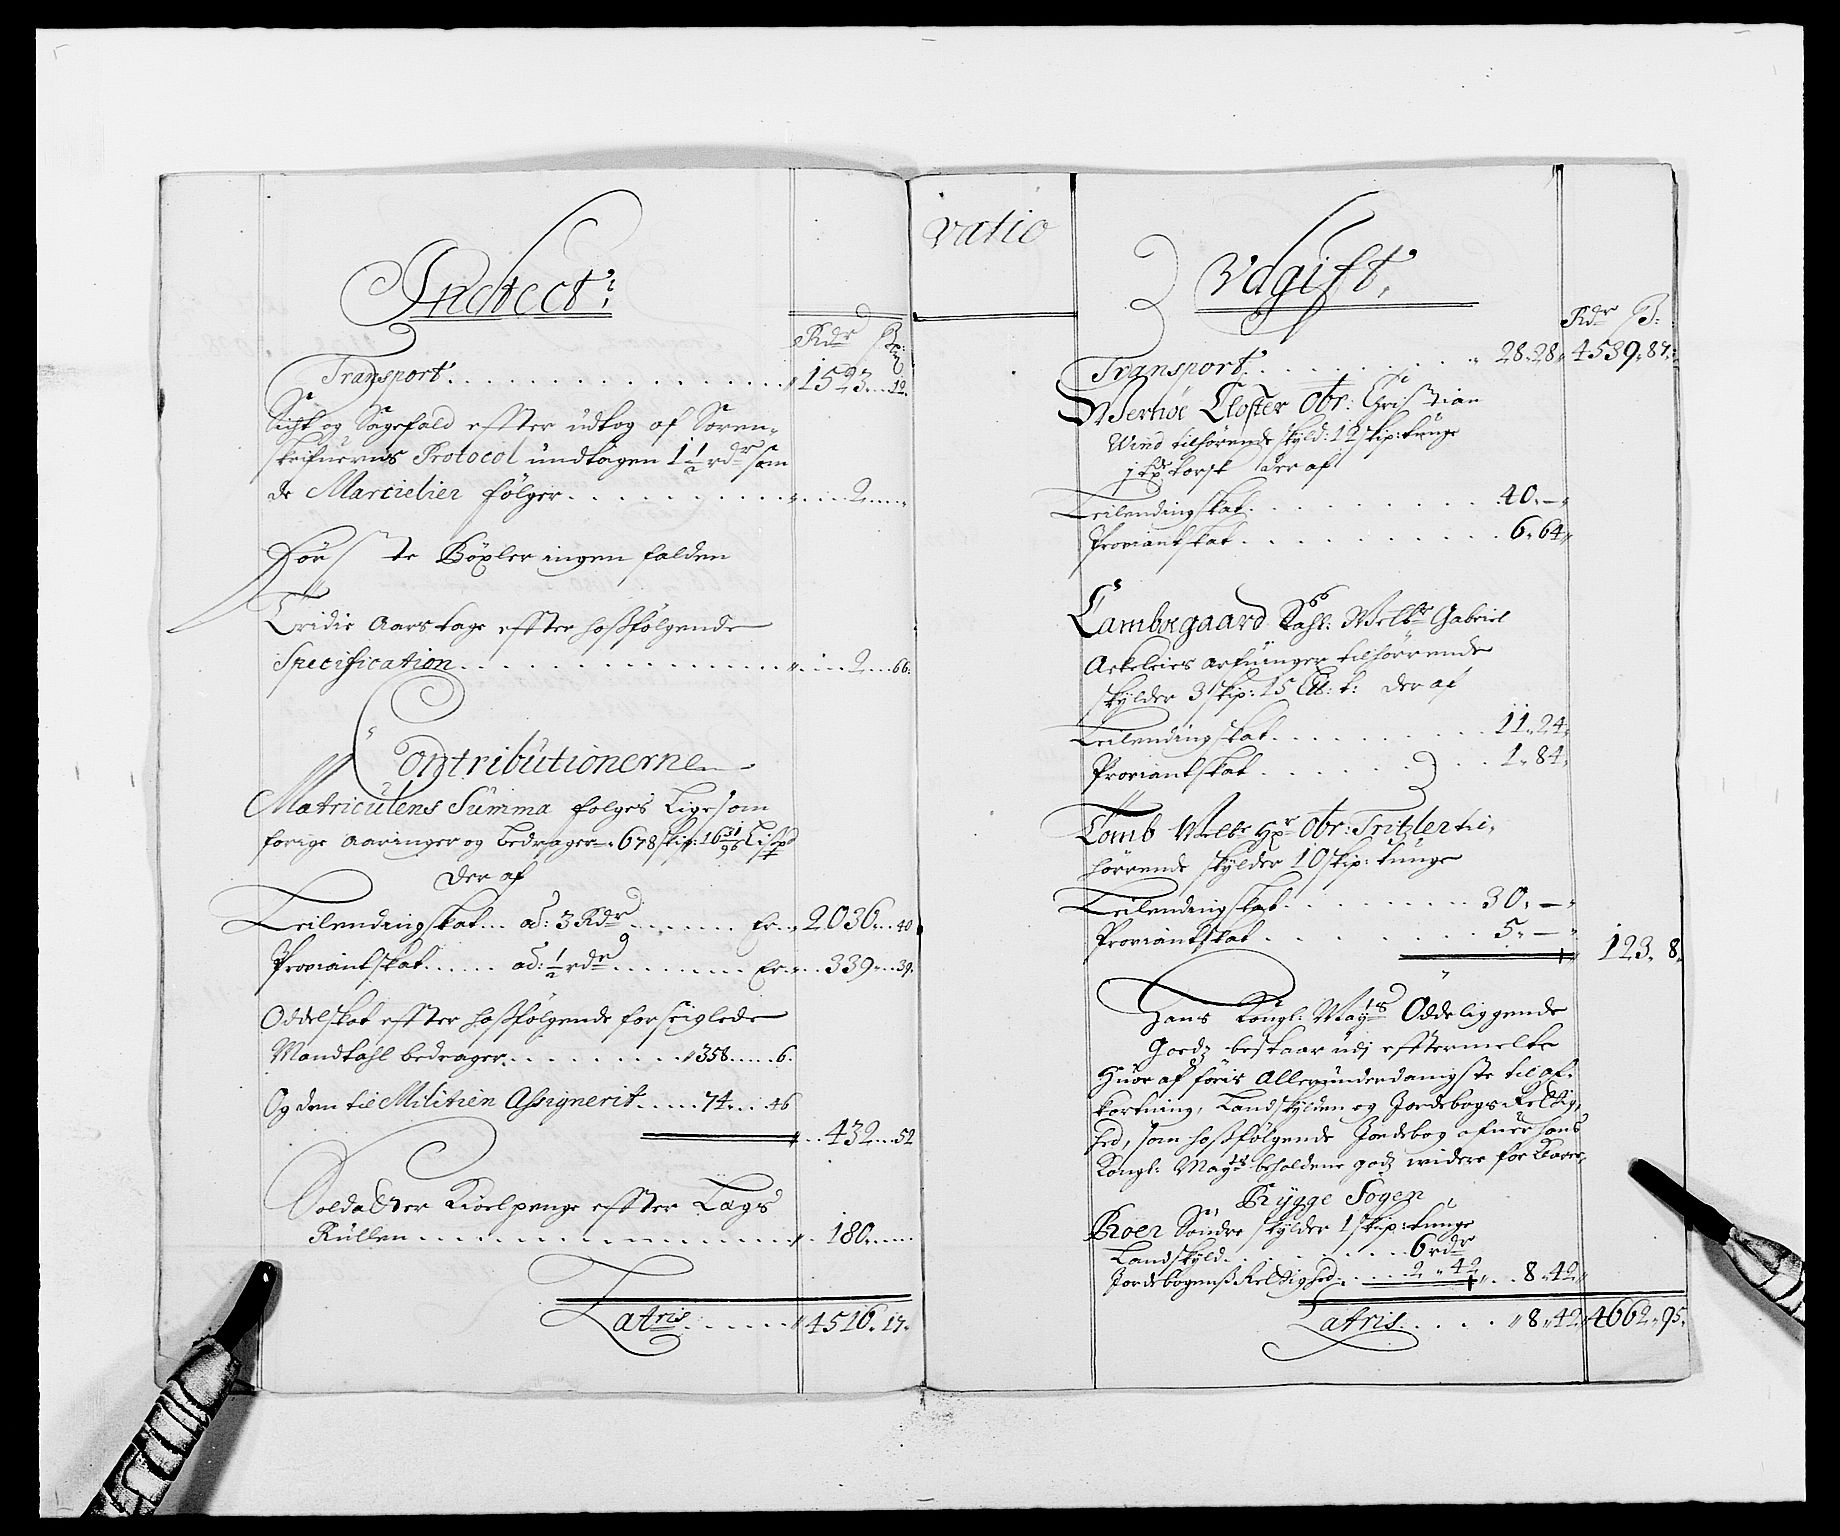 Indtect:
Rdr ß:
Transport . . . 1523 . . 12.
Sicht og Sagefald effter udtog af Soren-
skrifuerens Protocol undtagen 1 1/2 rdr som
de Martielier følger . . . 2 . .
Første Böxler ingen falden
Tridie Aars tage effter hoßfölgende
Specification . . . 2 . . 66.
Contributionerne
Matriculens Summa følges Lige som
forige Aaringer og bedrager 678 skip: 16 31/96 Lispd
der af
Leilendingskat . . ad: 3 Rdr . . . Er 2036 . . 40
Proviantskat . . . ad: 1/2 rdr . . . Er . . 339 . . 39.
Oddelskat effter hoßfölgende forseiglede
Mandtahl bedrager . . . 358 . . 6.
Og den til Militien Assignerit . . . 74 . . 46
432 . . 52
Soldatter Kiolpenge effter Lags
Rüllen . . . 180 . . .
Latris . . . 4516. 17.
ratio
Udgift,
Rdr ß:
Transport . . . 28. 28 4539. 87.
Werhøe Closter Obr: Christian
Wind tilhørende skyld: 12 skip: tunge
torsk der af
Leilendingskat . . . 40. —
Proviantskat . . . 6. 64
Tambegaard Sahl: Welbr Gabriel
Ackeleies arfuinger tilhørrende
skylder 3 skip: 15 Lt: t: der af
Leilendingskat . . . 11. 24.
Proviantskat . . . 1. 84.
Tomb Welbr Hr Obr: Tritzler til-
hörrende skylder 10 skip: tunge
Leilendingskat . . . 30. —
Proviantskat . . . 5. — 123. 8.
Hans Kongl: Mayts Oddeliggende
Goedz bestaar udj efftermelte
Huor af føris Allerunderdanigste til af-
kortning, Landskylden og Jordebogs Rettig-
hed, som hoßfölgende Jordebog ofuer hans
Kongl: Mayts beholdene godz widere for klarer,
Rygge Sogen
Roer Söndre skylder 1 skip: tunge
Landskyld . . . 6 rdr
Jordebogens Rettighed . . . 2. 42 . . 8. 42
Latris . . . 8. 42 4662. 95.